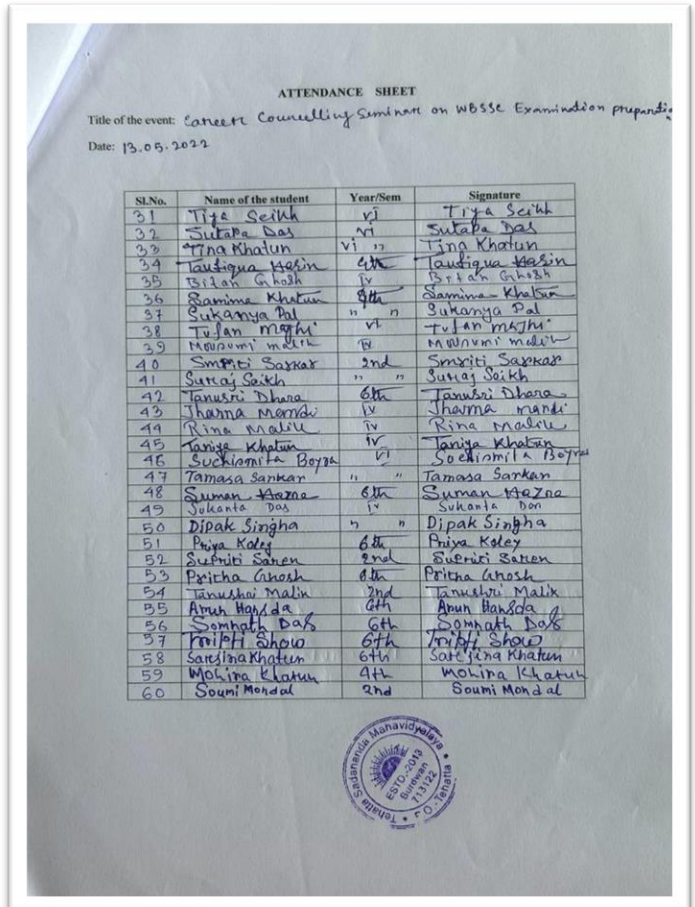 ATTENDANCE SHEET
Title of the event: Career Councelling Seminar on WBSSC Examination preparatio
Date: 13.05.2022
Sl.No. Name of the student Year/Sem Signature
31 Tiya Seikh vi Tiya Seikh
32 Sutapa Das vi Sutapa Das
33 Tina Khatun vi " Tina Khatun
34 Taufiqua Hasin 4th Taufiqua Hasin
35 Bitan Ghosh iv Bitan Ghosh
36 Samima Khatun 4th Samima Khatun
37 Sukanya Pal " " Sukanya Pal
38 Tufan Majhi vi Tufan Majhi
39 Mousumi malik iv Mousumi malik
40 Smriti Sarkar 2nd Smriti Sarkar
41 Suraj Saikh " " Suraj Saikh
42 Tanusri Dhara 6th Tanusri Dhara
43 Jharna Mandi iv Jharna mandi
44 Rina Malik iv Rina Malik
45 Taniya Khatun iv Taniya Khatun
46 Suchismita Boyra vi Suchismita Boyra
47 Tamasa Sarkar " " Tamasa Sarkar
48 Suman Hazra 6th Suman Hazra
49 Sukanta Das iv Sukanta Das
50 Dipak Singha " " Dipak Singha
51 Priya Koley 6th Priya Koley
52 Supriti Saren 2nd Supriti Saren
53 Pritha Ghosh Pritha Ghosh
54 Tanushri Malik 2nd Tanushri Malik
55 Arun Hansda 6th Arun Hansda
56 Somnath Das 6th Somnath Das
57 Tripti Show 6th Tripti Show
58 Sarejina Khatun 6th Sarejina Khatun
59 Mohira Khatun 4th Mohira Khatun
60 Soumi Mondal 2nd Soumi Mondal
Tehatta Sadananda Mahavidyalaya
ESTD.-2013
Burdwan
713122
P.O.-Tehatta